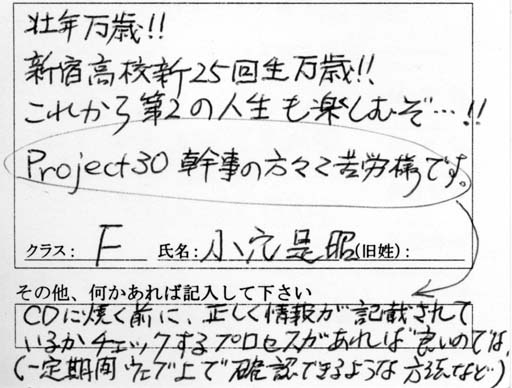 壮年万歳!!
新宿高校新25回生万歳!!
これから第2の人生も楽しむぞ…!!
Project30 幹事の方々ご苦労様です。
クラス: F 氏名: 小穴是昭 (旧姓):
その他、何かあれば記入して下さい
CDに焼く前に、正しく情報が記載されて
いるかチェックするプロセスがあれば良いのでは、
(一定期間ウェブ上で確認できるような方法など)